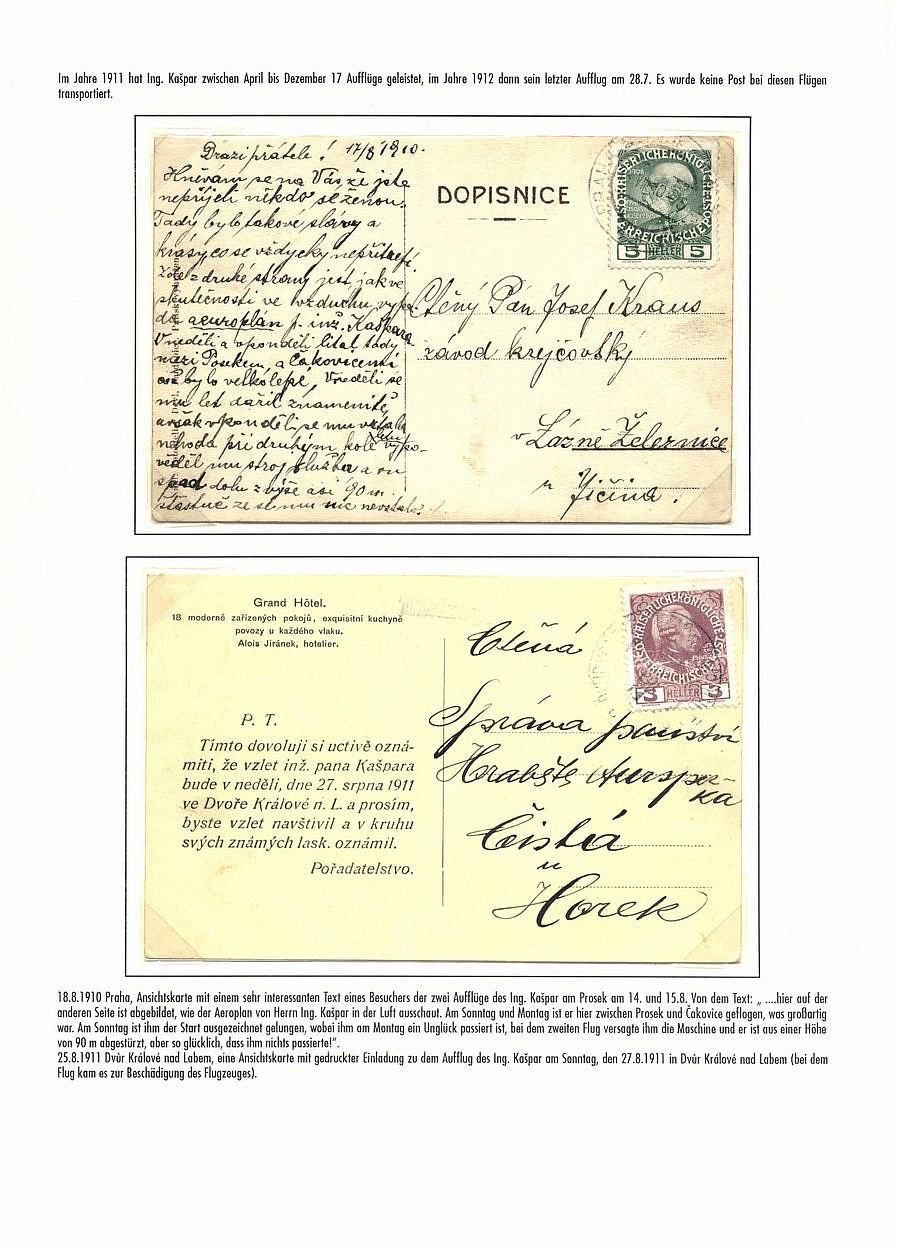 Im Jahre 1911 hat Ing. Kašpar zwischen April bis Dezember 17 Aufflüge geleistet, im Jahre 1912 dann sein letzter Aufflug am 28.7. Es wurde keine Post bei diesen Flügen
transportiert.
Drazí přátelé! 17/8 1910.
Hněvám se na Vás že jste
nepřijeli někdo se ženou.
Tady bylo takové slávy a
krásy co se vždycky nepřitrefí.
Zde z druhé strany jest, jak ve
skutečnosti ve vzduchu vypa-
dá aeuroplán p. inž. Kašpara
V neděli a v pondělí lítal tady
mezi Prosekem a Čakovicemi
což bylo velkolepé, V neděli se
mu let dařil znamenitě,
avšak v pondělí se mu
nehoda při druhým kole vypo-
věděl mu stroj službu a on
spad dolu z výše asi 90 m.
štastně že se mu nic nestalo.
DOPISNICE
5 HELLER 5
Ctěný Pán Josef Kraus
závod krejčovský
v Lázně Železnice
u Jičína.
Grand Hôtel.
18 moderně zařízených pokojů, exquisitní kuchyně
povozy u každého vlaku.
Alois Jiránek, hotelier.
P. T.
Tímto dovoluji si uctivě ozná-
miti, že vzlet inž. pana Kašpara
bude v neděli, dne 27. srpna 1911
ve Dvoře Králové n. L. a prosím,
byste vzlet navštívil a v kruhu
svých známých lask. oznámil.
Pořadatelstvo.
3 HELLER 3
Ctěná
Správa panství
Hraběte Aursper-
ka
Čistá
u
Horek
18.8.1910 Praha, Ansichtskarte mit einem sehr interessanten Text eines Besuchers der zwei Aufflüge des Ing. Kašpar am Prosek am 14. und 15.8. Von dem Text: „ ....hier auf der
anderen Seite ist abgebildet, wie der Aeroplan von Herrn Ing. Kašpar in der Luft ausschaut. Am Sonntag und Montag ist er hier zwischen Prosek und Čakovice geflogen, was großartig
war. Am Sonntag ist ihm der Start ausgezeichnet gelungen, wobei ihm am Montag ein Unglück passiert ist, bei dem zweiten Flug versagte ihm die Maschine und er ist aus einer Höhe
von 90 m abgestürzt, aber so glücklich, dass ihm nichts passierte!“.
25.8.1911 Dvůr Králové nad Labem, eine Ansichtskarte mit gedruckter Einladung zu dem Aufflug des Ing. Kašpar am Sonntag, den 27.8.1911 in Dvůr Králové nad Labem (bei dem
Flug kam es zur Beschädigung des Flugzeuges).